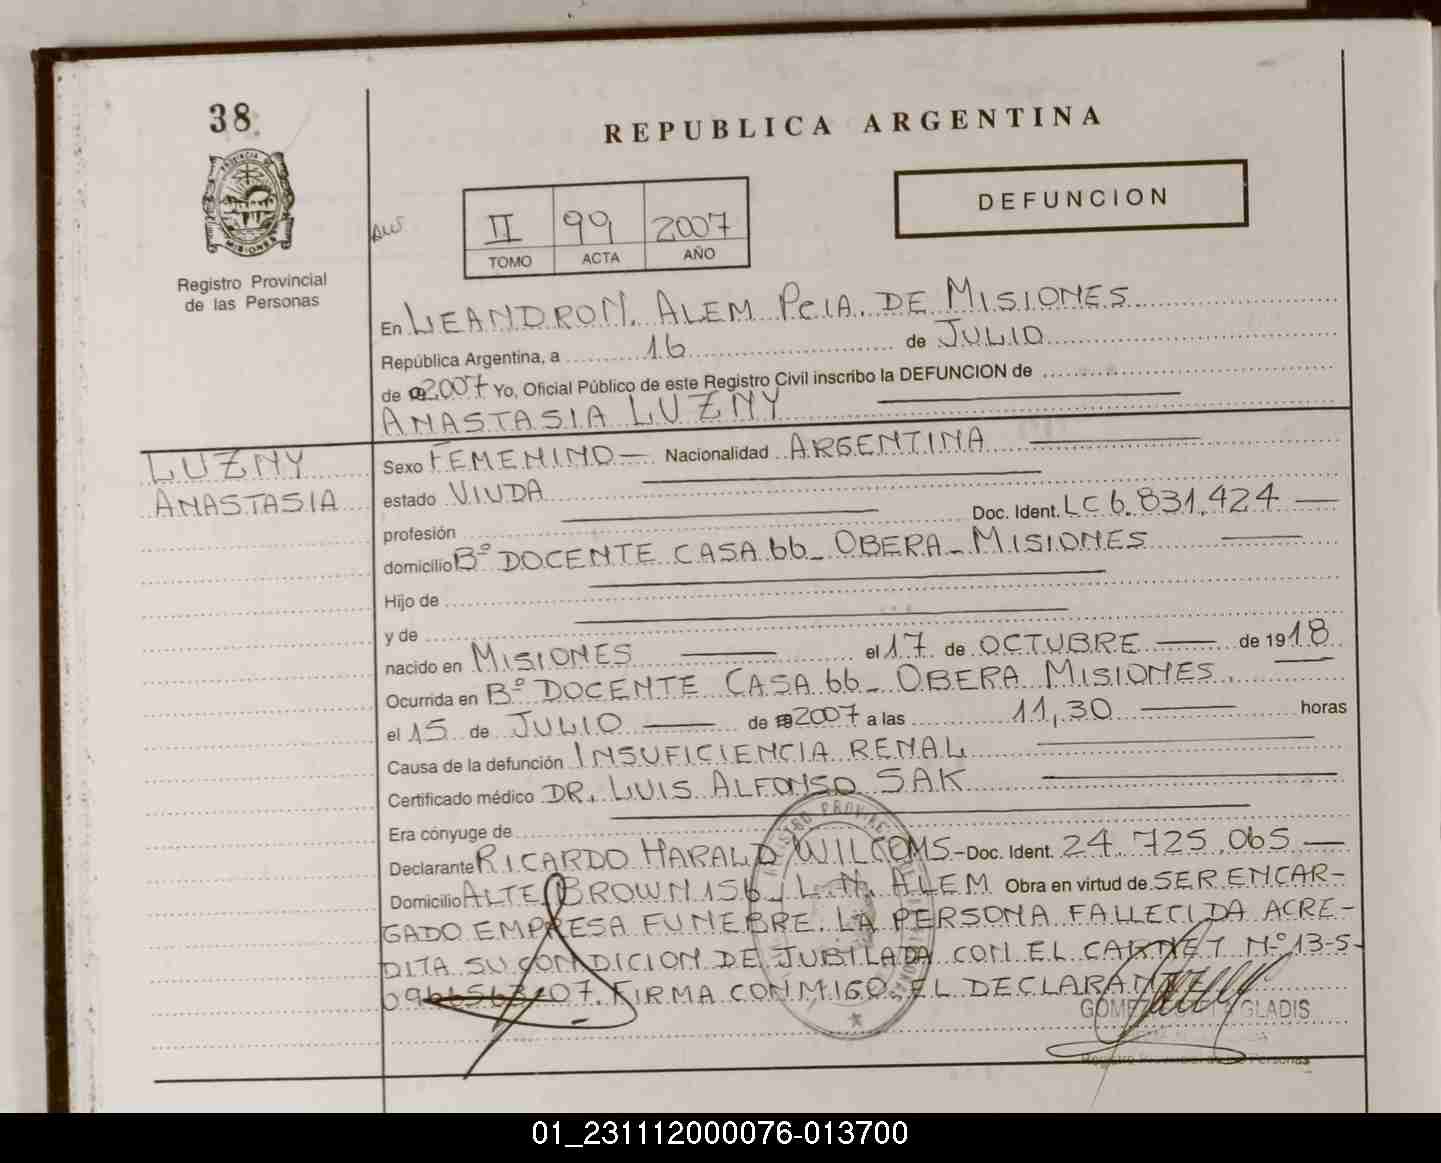 38
REPUBLICA ARGENTINA
DEFUNCION
PROVINCIA DE
MISIONES
Registro Provincial
de las Personas
II 99 2007
TOMO ACTA AÑO
En LEANDRO N. ALEM PCIA. DE MISIONES
República Argentina, a 16 de JULIO
de 2007 Yo, Oficial Público de este Registro Civil inscribo la DEFUNCION de
ANASTASIA LUZNY
LUZNY
ANASTASIA
Sexo FEMENINO Nacionalidad ARGENTINA
estado VIUDA
profesión Doc. Ident. LC 6.831.424
domicilio Bº DOCENTE CASA 66 - OBERA - MISIONES
Hijo de
y de
nacido en MISIONES el 17 de OCTUBRE de 1918
Ocurrida en Bº DOCENTE CASA 66 - OBERA MISIONES
el 15 de JULIO de 2007 a las 11,30 horas
Causa de la defunción INSUFICIENCIA RENAL
Certificado médico DR. LUIS ALFONSO SAK
Era cónyuge de
Declarante RICARDO HARALD WILCOMS - Doc. Ident. 24.725.065
Domicilio ALTE BROWN 156 - L. N. ALEM Obra en virtud de SER ENCAR-
GADO EMPRESA FUNEBRE. LA PERSONA FALLECIDA ACRE-
DITA SU CONDICION DE JUBILADA CON EL CARNET Nº 13-5-
FIRMA CONMIGO EL DECLARANTE
GLADIS
01_231112000076-013700